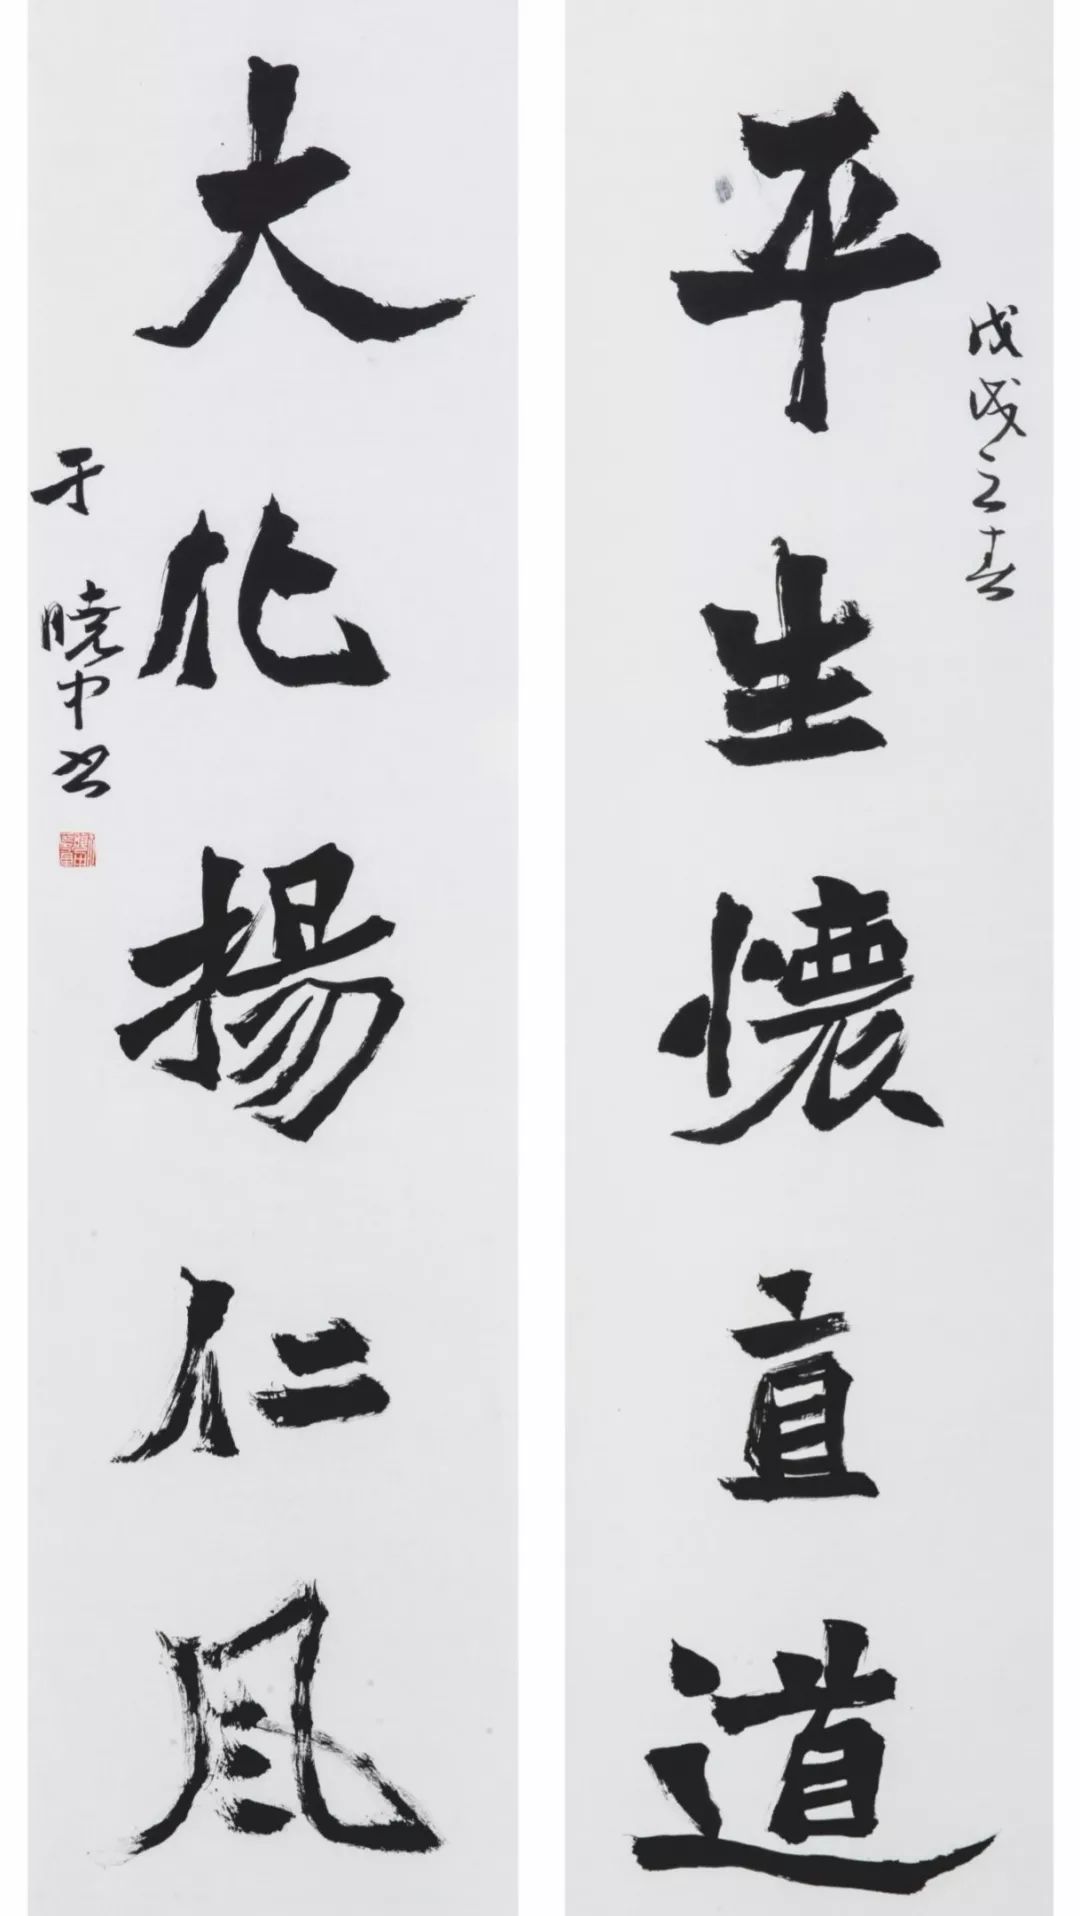 平生懷直道
戊戌之春
大化揚仁風
于曉中書